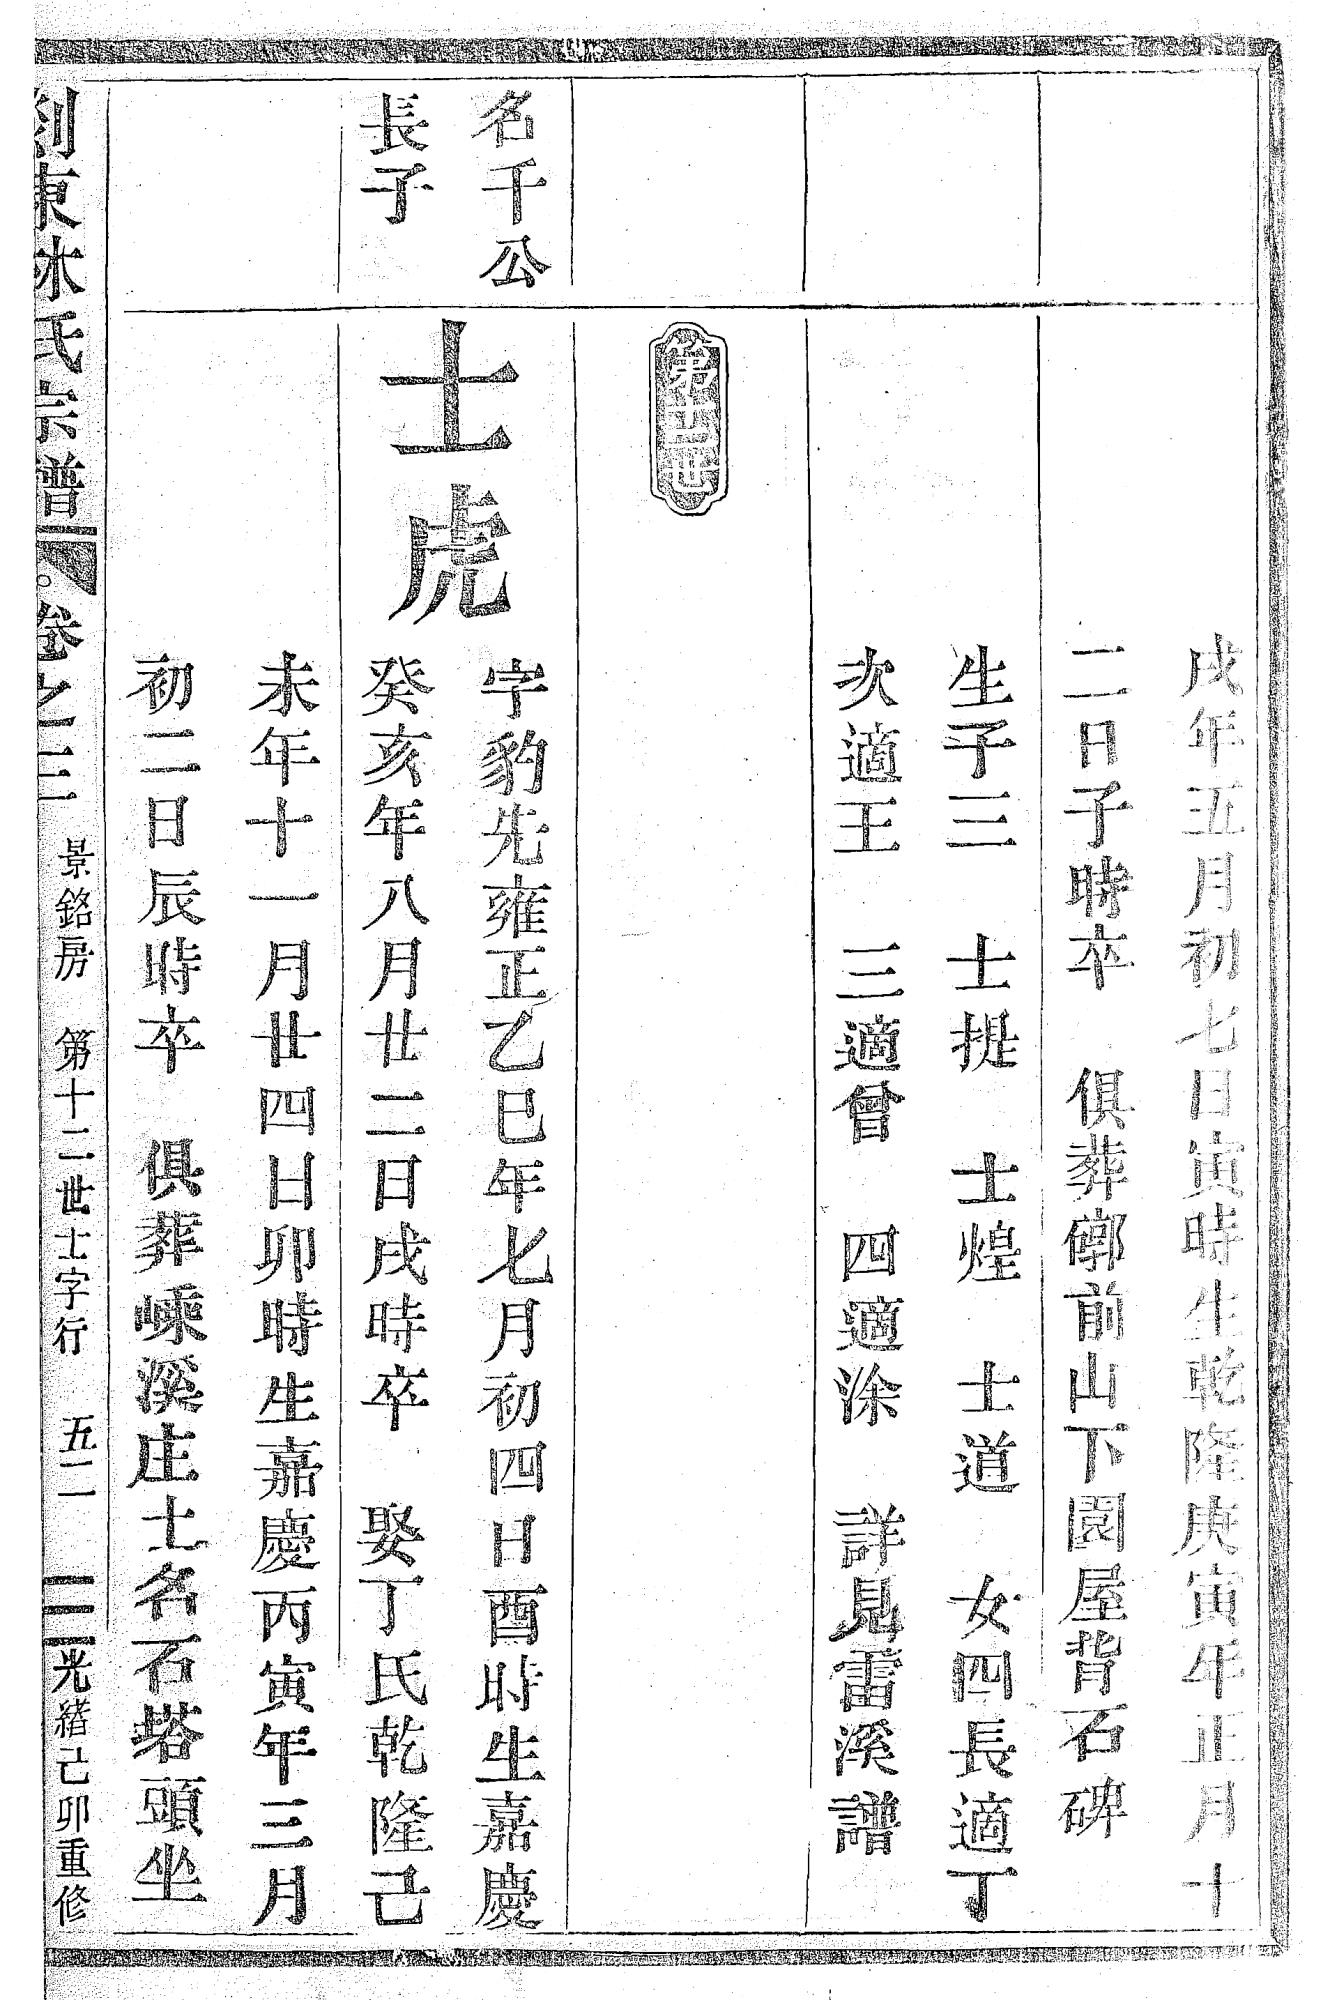 戌年五月初七日寅時生乾隆庚寅年正月十
二日子時卒 俱葬鄔前山下園屋背石碑
生子三 士提 士煌 士道 女四長適丁
次適王 三適曾 四適涂 詳見雷溪譜
第十二世
名千公
長子
士虎
字豹先雍正乙巳年七月初四日酉時生嘉慶
癸亥年八月廿二日戌時卒 娶丁氏乾隆己
未年十一月廿四日卯時生嘉慶丙寅年三月
初二日辰時卒 俱葬嵊溪庄士名石塔頭坐
東木氏宗譜 卷之三 景銘房 第十二世士字行 五二 光緒己卯重修